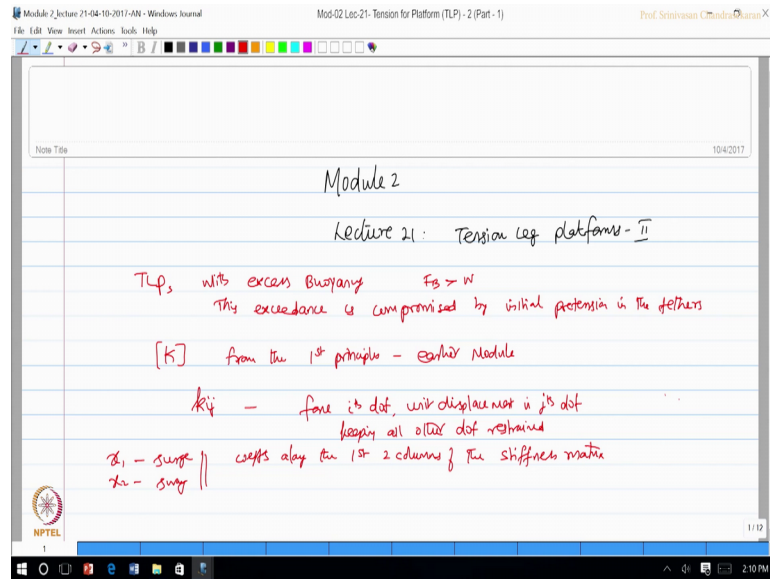 Module 2_lecture 21-04-10-2017-AN - Windows Journal
Mod-02 Lec-21- Tension for Platform (TLP) - 2 (Part - 1)
Prof. Srinivasan Chandrasekaran
File Edit View Insert Actions Tools Help
Note Title
10/4/2017
Module 2
Lecture 21: Tension Leg platforms - II
TLPs with excess Buoyancy FB > W
This exceedance is compromised by initial pretension in the tethers
[K] from the 1st principle - earlier Module
kij - force ith dof, unit displacement in jth dof
keeping all other dof restrained
x1 - surge
x2 - sway
coeffs along the 1st 2 columns of the stiffness matrix
NPTEL
1 / 12
1
2:10 PM